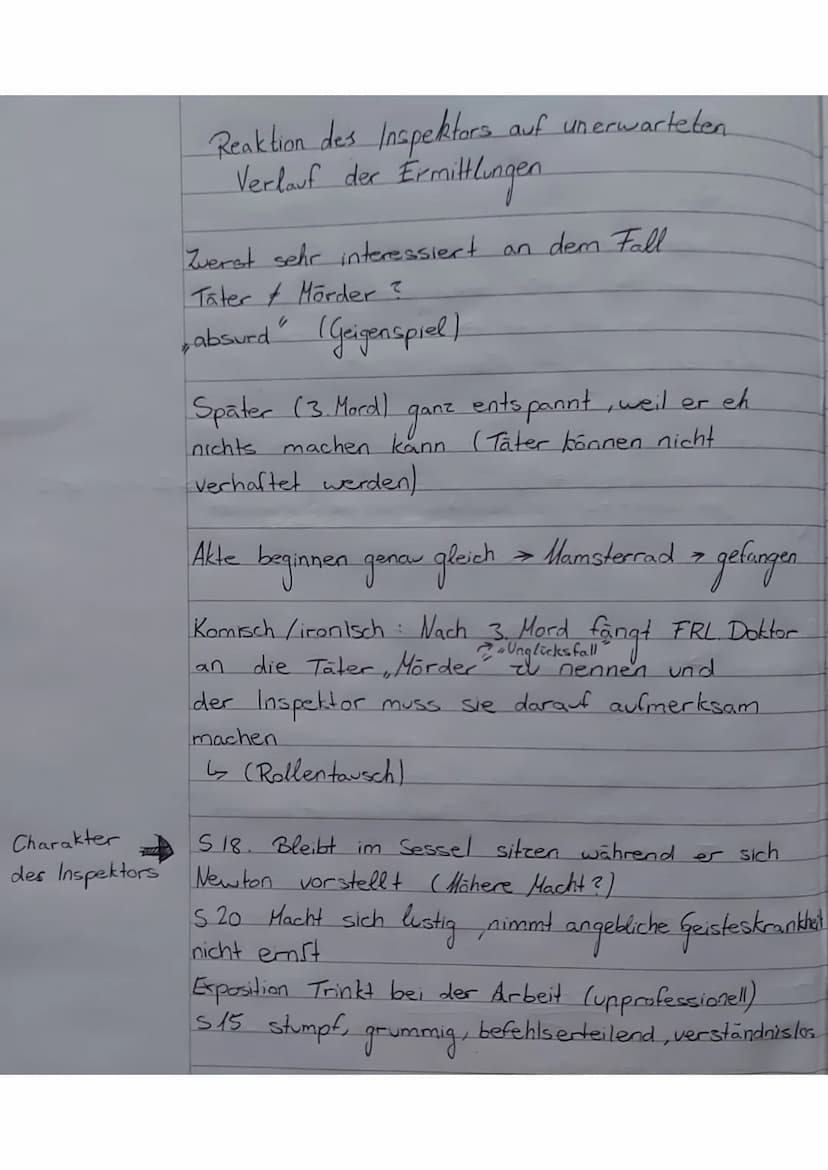 Reaktion des Inspektors auf unerwarteten
Verlauf der Ermittlungen
Zuerst sehr interessiert an dem Fall
Täter ≠ Mörder ?
„absurd" (Geigenspiel)
Später (3. Mord) ganz entspannt, weil er eh
nichts machen kann (Täter können nicht
verhaftet werden)
Akte beginnen genau gleich → Hamsterrad → gefangen
Komisch/ironisch : Nach 3. Mord fängt FRL. Doktor
→ „Unglücksfall"
an die Täter „Mörder" zu nennen und
der Inspektor muss sie darauf aufmerksam
machen
↳ (Rollentausch)
Charakter
des Inspektors →
S 18. Bleibt im Sessel sitzen während er sich
Newton vorstellt (Höhere Macht?)
S 20 Macht sich lustig, nimmt angebliche Geisteskrankheit
nicht ernst
Exposition Trinkt bei der Arbeit (upprofessionell)
S 15 stumpf, grummig, befehlserteilend, verständnislos